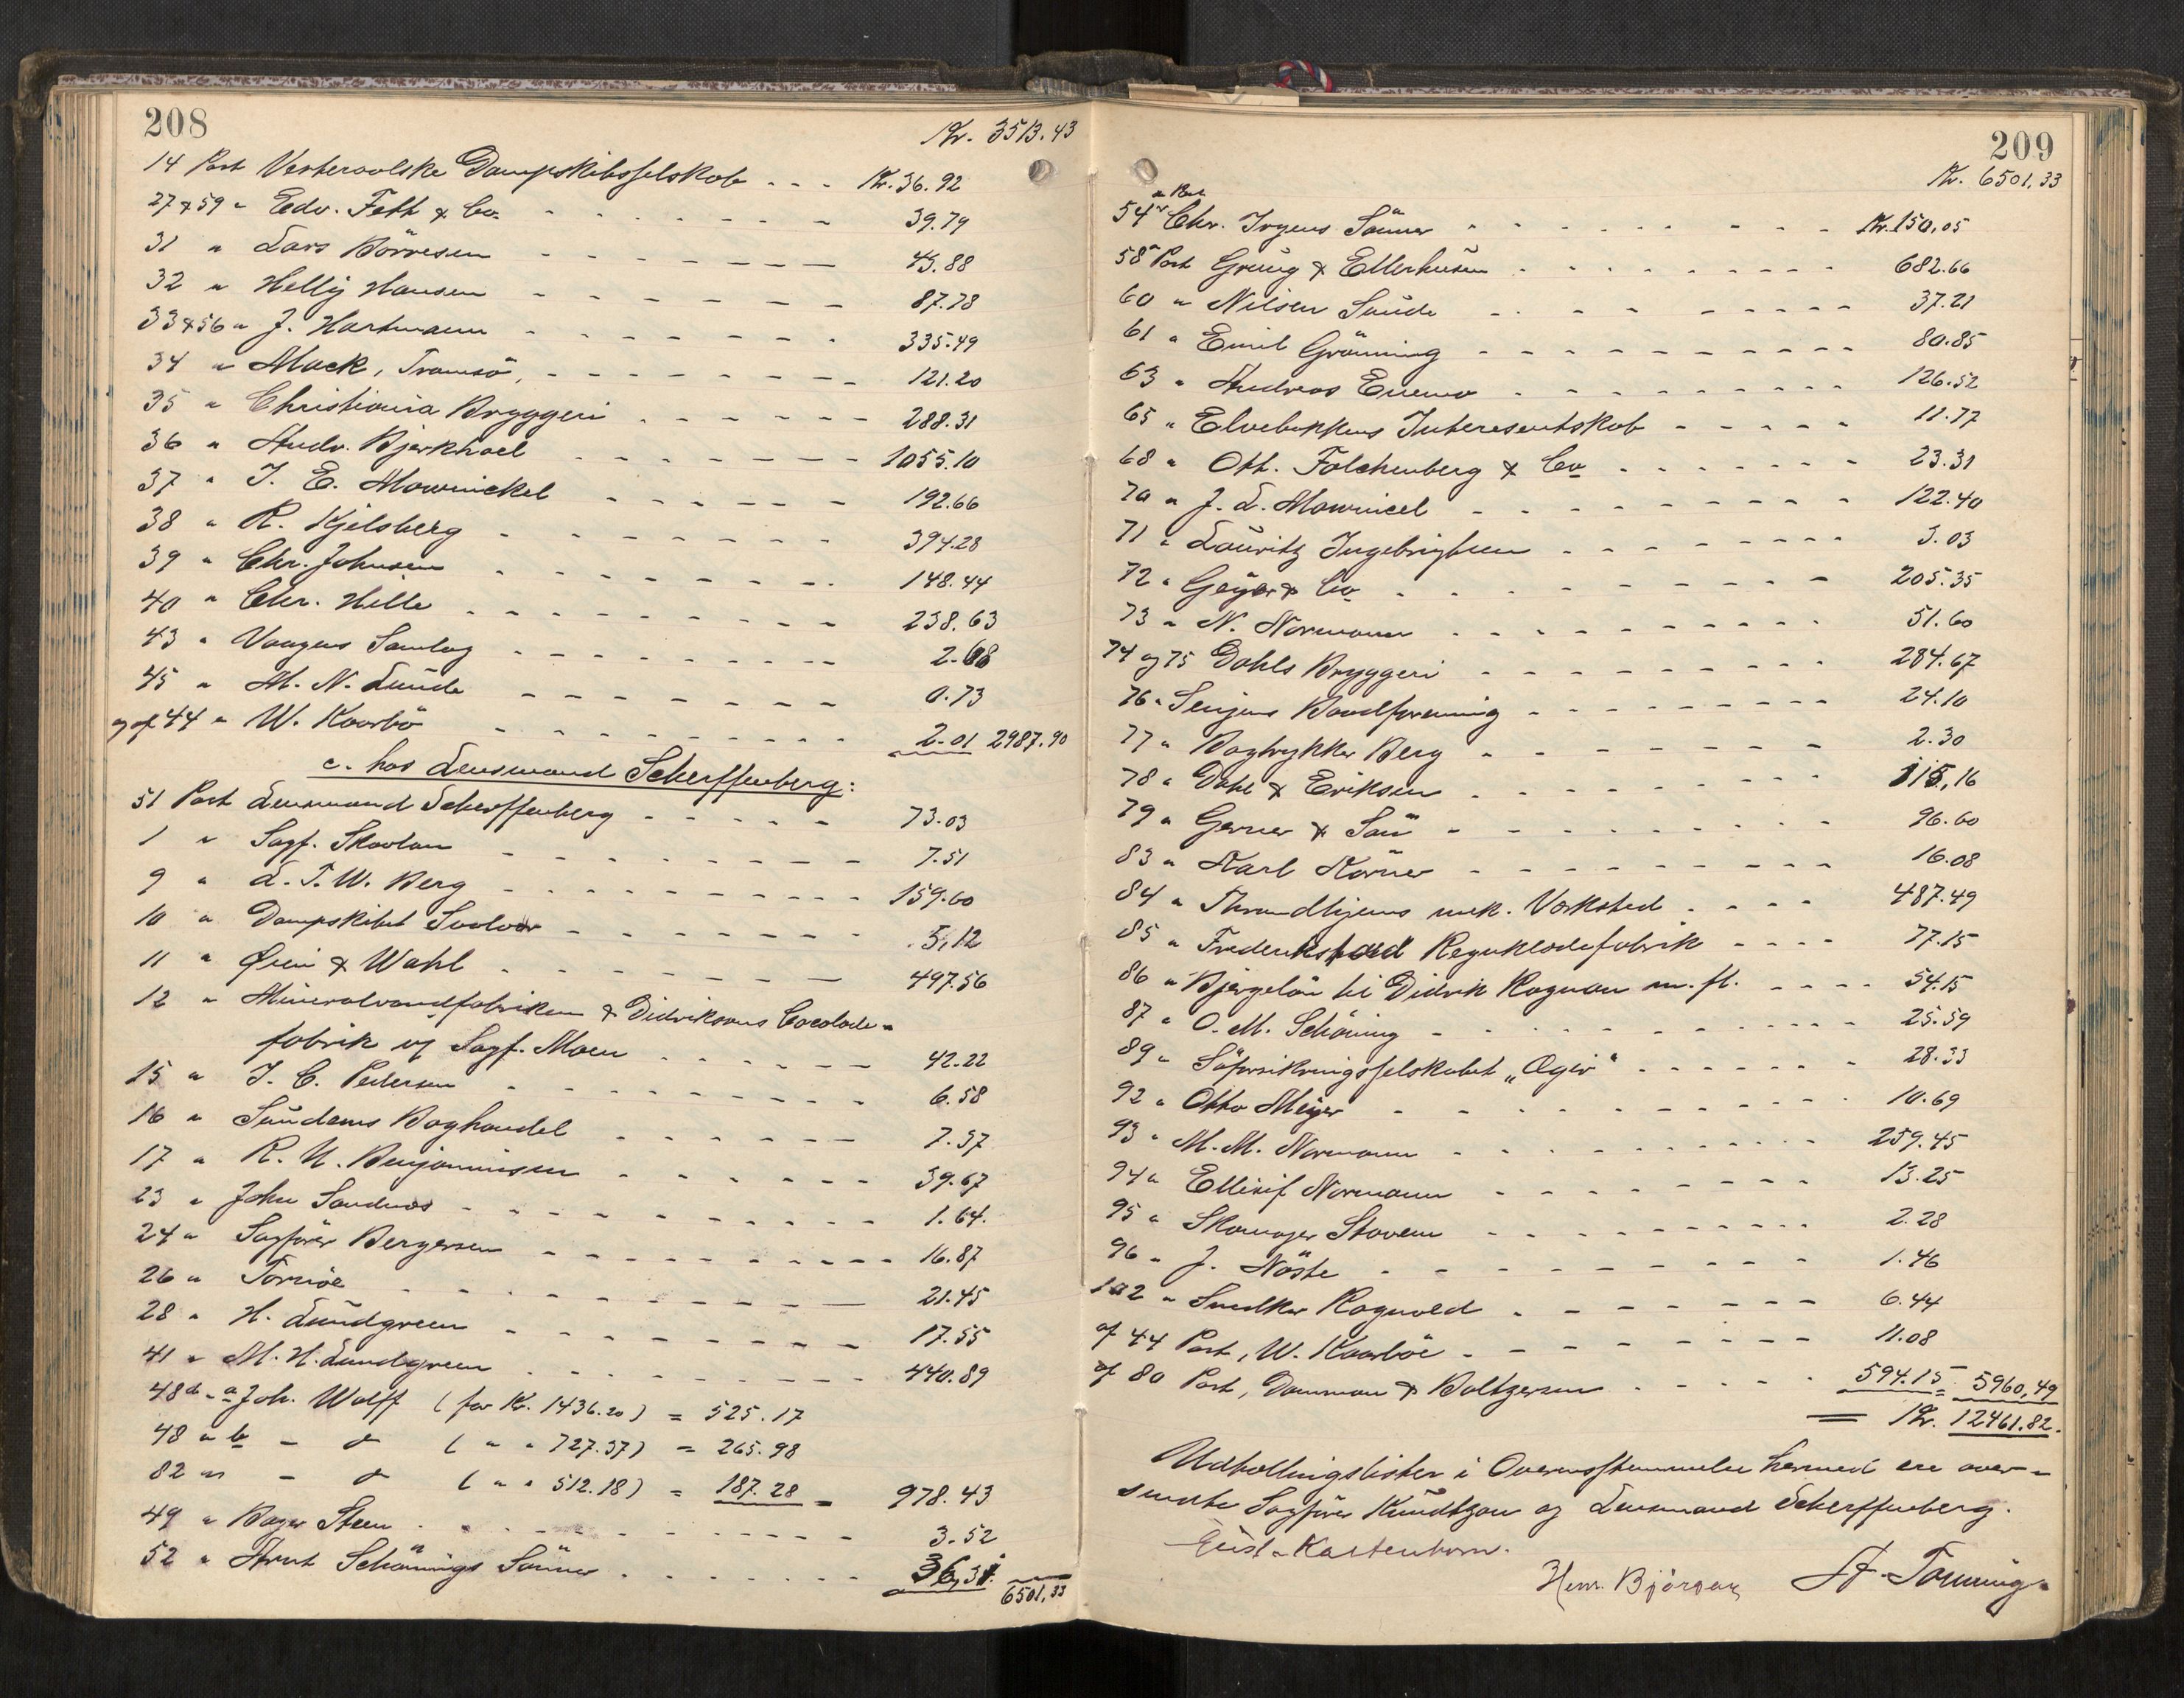 208
Kr. 3513.43
14 Post Vesteraalske Dampskibsselskab - - - Kr. 36.92
27 & 59 " Edv. Fett & Co. - - - 39.79
31 " Lars Börresen - - - 43.88
32 " Helly Hansen - - - 87.78
33 & 56 " J. Hartmann - - - 335.49
34 " Mack, Tromsö, - - - 121.20
35 " Christiania Bryggeri - - - 288.31
36 " Andr. Bjerkhael - - - 1055.10
37 " J. E. Mowinckel - - - 192.66
38 " R. Kjelsberg - - - 394.28
39 " Chr. Johnsen - - - 148.44
40 " Chr. Hille - - - 238.63
43 " Vaagens Samlag - - - 2.68
45 " M. N. Lunde - - - 0.73
og af 44 " W. Kaarbö - - - 2.01 2987.90
c. hos Lensmand Scherffenberg:
51 Post Lensmand Scherffenberg - - - 73.03
1 " Sagf. Skavlan - - - 7.51
9 " L. T. W. Berg - - - 159.60
10 " Dampskibet Svolvær - - - 5,12
11 " Øien & Wahl - - - 497.56
12 " Mineralvandfabriken & Didriksens Cocolade-
fabrik og Sagf. Moen - - - 42.22
15 " J. C. Pedersen - - - 6.58
16 " Sundems Boghandel - - - 7.37
17 " R. U. Benjaminsen - - - 39.67
23 " John Sandnæs - - - 1.64.
24 " Sagförer Bergersen - - - 16.87
26 " Tornöe - - - 21.45
28 " H. Lundgreen - - - 17.55
41 " M. H. Lundgreen - - - 440.89
48 d - a Joh. Wolff (for Kr. 1436.20) = 525.17
48 " b - do ( " " 727.37) = 265.98
82 " - do ( " " 512.18) = 187.28 = 978.43
49 " Bager Steen - - - 3.52
52 " Arnt Schönings Sönner - - - 36,31.
6501,33
209
Kr. 6501,33
54 a Post Chr. Irgens Sönner - - - Kr. 150,05
58 a Post Grung & Ellerhusen - - - 682.66
60 " Nilsen Sunde - - - 37.21
61 " Emil Grönning - - - 80.85
63 " Andreas Enemo - - - 126.52
65 " Elvebakkens Interesentskab - - - 11.77
68 " Oth. Falchenberg & Co - - - 23.31
70 " J. L. Mowincel - - - 122.40
71 " Lauritz Ingebrigtsen - - - 3.03
72 " Geÿer & Co - - - 205.35
73 " N. Normann - - - 51.60
74 og 75 Dahls Bryggeri - - - 284.67
76 " Senjens Vandforening - - - 24.10
77 " Bogtrykker Berg - - - 2.30
78 " Dahl & Eriksen - - - 315,16
79 " Garner & Sön - - - 96.60
83 " Karl Körner - - - 16.08
84 " Throndhjems mek. Værksted - - - 487.49
85 " Frederikstad Regnklædefabrik - - - 77.15
86 " Bjergelön til Didrik Ragnan m. fl. - - - 54.15
87 " O. M. Schöning - - - 25.59
89 " Söforsikringsselskabet „Ægir" - - - 28.33
92 " Otto Meyer - - - 10.69
93 " M. M. Normann - - - 259.45
94 " Ellisif Normann - - - 13.25
95 " Skomager Stavem - - - 2.28
96 " J. Nöste - - - 1.46
102 " Snedker Ragnvald - - - 6.44
af 44 Post, W. Kaarböe - - - 11.08
af 80 Post, Damman & Baltzersen - - - 594.15 = 5960,49
= Kr. 12461.82.
Udtællingslister i Overensstemmelse hermed ere over-
sendte Sagförer Kundtzon og Lensmand Scherffenberg.
Kastenborn.
Henr. Björgan A. Tönning.